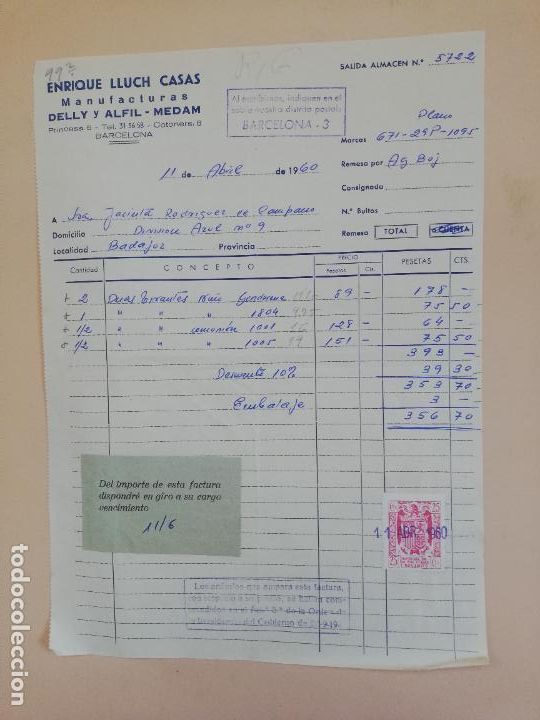 99
SALIDA ALMACEN N.º 5722
ENRIQUE LLUCH CASAS
Manufacturas
DELLY y ALFIL - MEDAM
Princesa, 6 - Tel. 31 36 58 - Cotoners, 8
BARCELONA
Al escribirnos, indiquen en el
sobre nuestro distrito postal:
BARCELONA - 3
Plano
Marcas 671-29P-1095
11 de Abril de 1960
Remesa por Ag Boj
Consignada
A Sra. Jacinta Rodriguez de Campano
N.º Bultos
Domicilio Division Azul nº 9
Remesa TOTAL A CUENTA
Localidad Badajoz Provincia
Cantidad CONCEPTO PRECIO Pesetas Cts. PESETAS CTS.
2 89 - 178 -
1 " " " 1804 75 50
1/2 " " comunión 1001 128 - 64 -
1/2 " " " 1005 151 - 75 50
393 -
Descuento 10% 39 30
353 70
Embalaje 3 -
356 70
Del importe de esta factura
dispondré en giro a su cargo
vencimiento
11/6
11 ABR. 1960
Los artículos que ampara esta factura,
todocoleccion